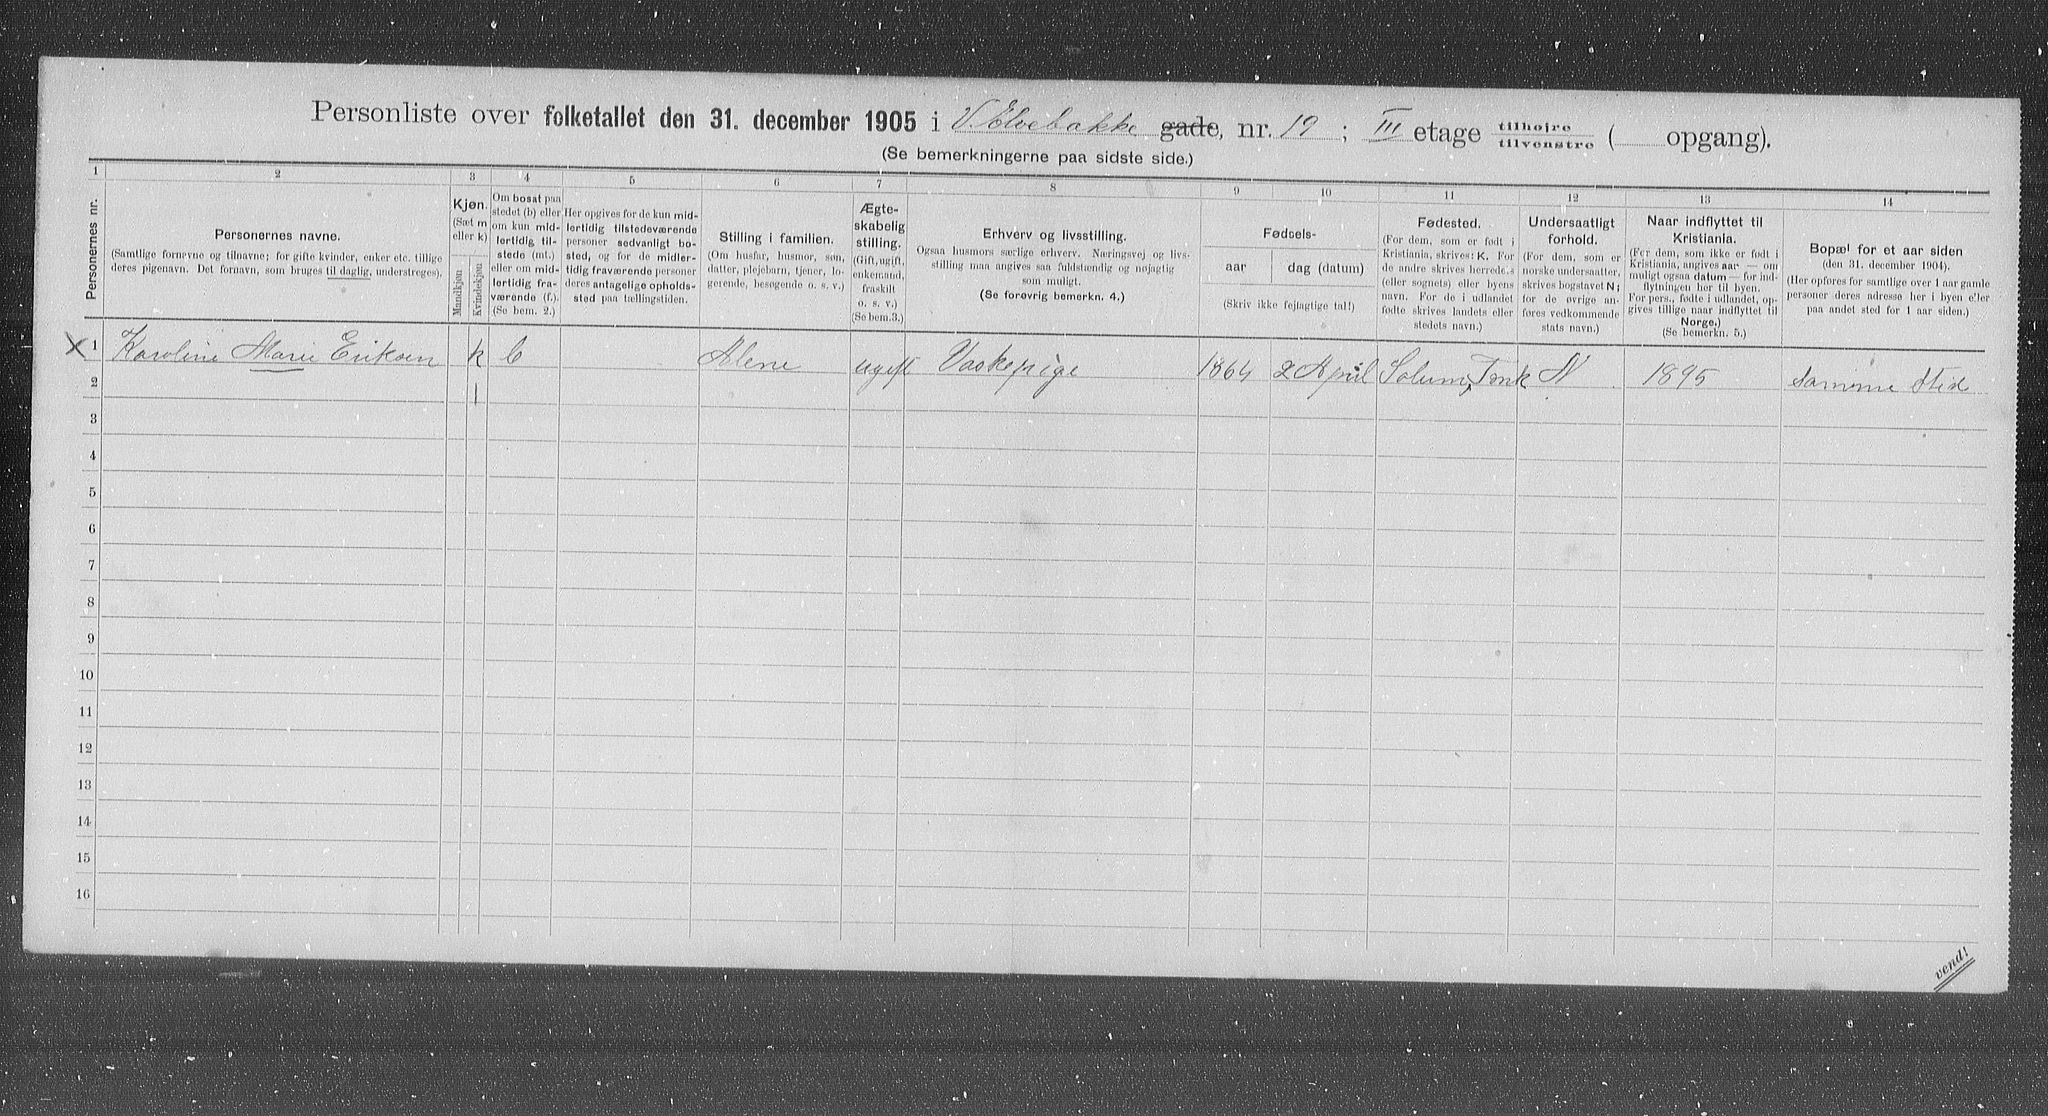 Personliste over folketallet den 31. december 1905 i V. Elvebakke gade, nr. 19 ; III etage tilhøjre tilvenstre ( opgang).
(Se bemerkningerne paa sidste side.)
1 2 3 4 5 6 7 8 9 10 11 12 13 14
Personernes nr.
Personernes navne.
(Samtlige fornavne og tilnavne; for gifte kvinder, enker etc. tillige
deres pigenavn. Det fornavn, som bruges til daglig, understreges).
Kjøn.
(Sæt m
eller k)
Mandkjøn
Kvindekjøn
Om bosat paa
stedet (b) eller
om kun mid-
lertidig til-
stede (mt.)
eller om mid-
lertidig fra-
værende (f.).
(Se bem. 2.)
Her opgives for de kun mid-
lertidig tilstedeværende
personer sedvanligt bo-
sted, og for de midler-
tidig fraværende personer
deres antagelige opholds-
sted paa tællingstiden.
Stilling i familien.
(Om husfar, husmor, søn,
datter, plejebarn, tjener, lo-
gerende, besøgende o. s. v.)
Ægte-
skabelig
stilling.
(Gift, ugift,
enkemand,
fraskilt
o. s. v.)
(Se bem. 3.)
Erhverv og livsstilling.
Ogsaa husmors særlige erhverv. Næringsvej og livs-
stilling maa angives saa fuldstændig og nøjagtig
som muligt.
(Se forøvrig bemerkn. 4.)
Fødsels-
aar
dag (datum)
(Skriv ikke fejlagtige tal!)
Fødested.
(For dem, som er født i
Kristiania, skrives: K. For
de andre skrives herredets
(eller sognets) eller byens
navn. For de i udlandet
fødte skrives landets eller
stedets navn.)
Undersaatligt
forhold.
(For dem, som er
norske undersaatter,
skrives bogstavet N;
for de øvrige an-
føres vedkommende
stats navn.)
Naar indflyttet til
Kristiania.
(For dem, som ikke er født i
Kristiania, angives aar — om
muligt ogsaa datum — for ind-
flytningen her til byen.
For pers., fødte i udlandet, op-
gives tillige naar indflyttet til
Norge.)
(Se bemerkn. 5.)
Bopæl for et aar siden
(den 31. december 1904).
(Her opføres for samtlige over 1 aar gamle
personer deres adresse her i byen eller
paa andet sted for 1 aar siden.)
X 1 Karoline Marie Eriksen k b Alene ugift Vaskepige 1864 2 April Solum, N 1895 Samme Sted
2
3
4
5
6
7
8
9
10
11
12
13
14
15
16
vend!